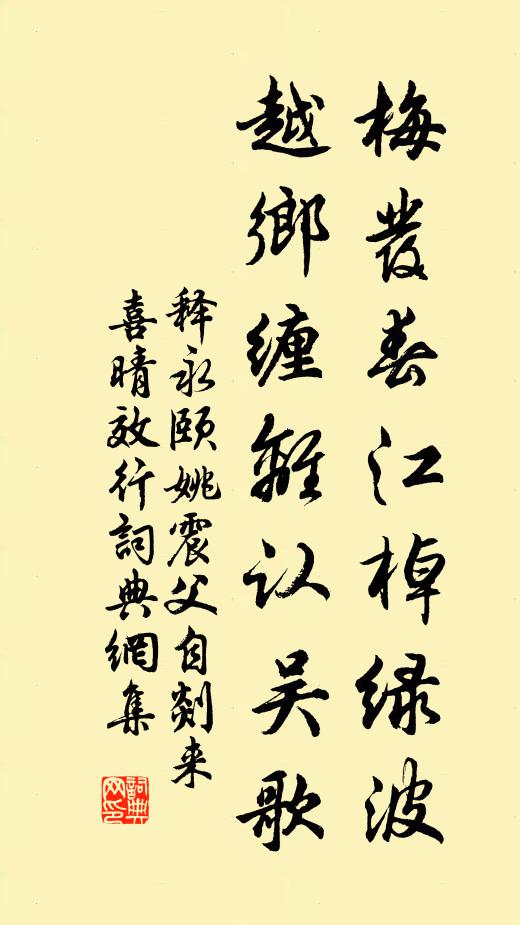 梅發春江棹绿波
越鄉缠離认吴歌
释永颐姚震父自剡来
喜晴效行詞典網集
詞典网印